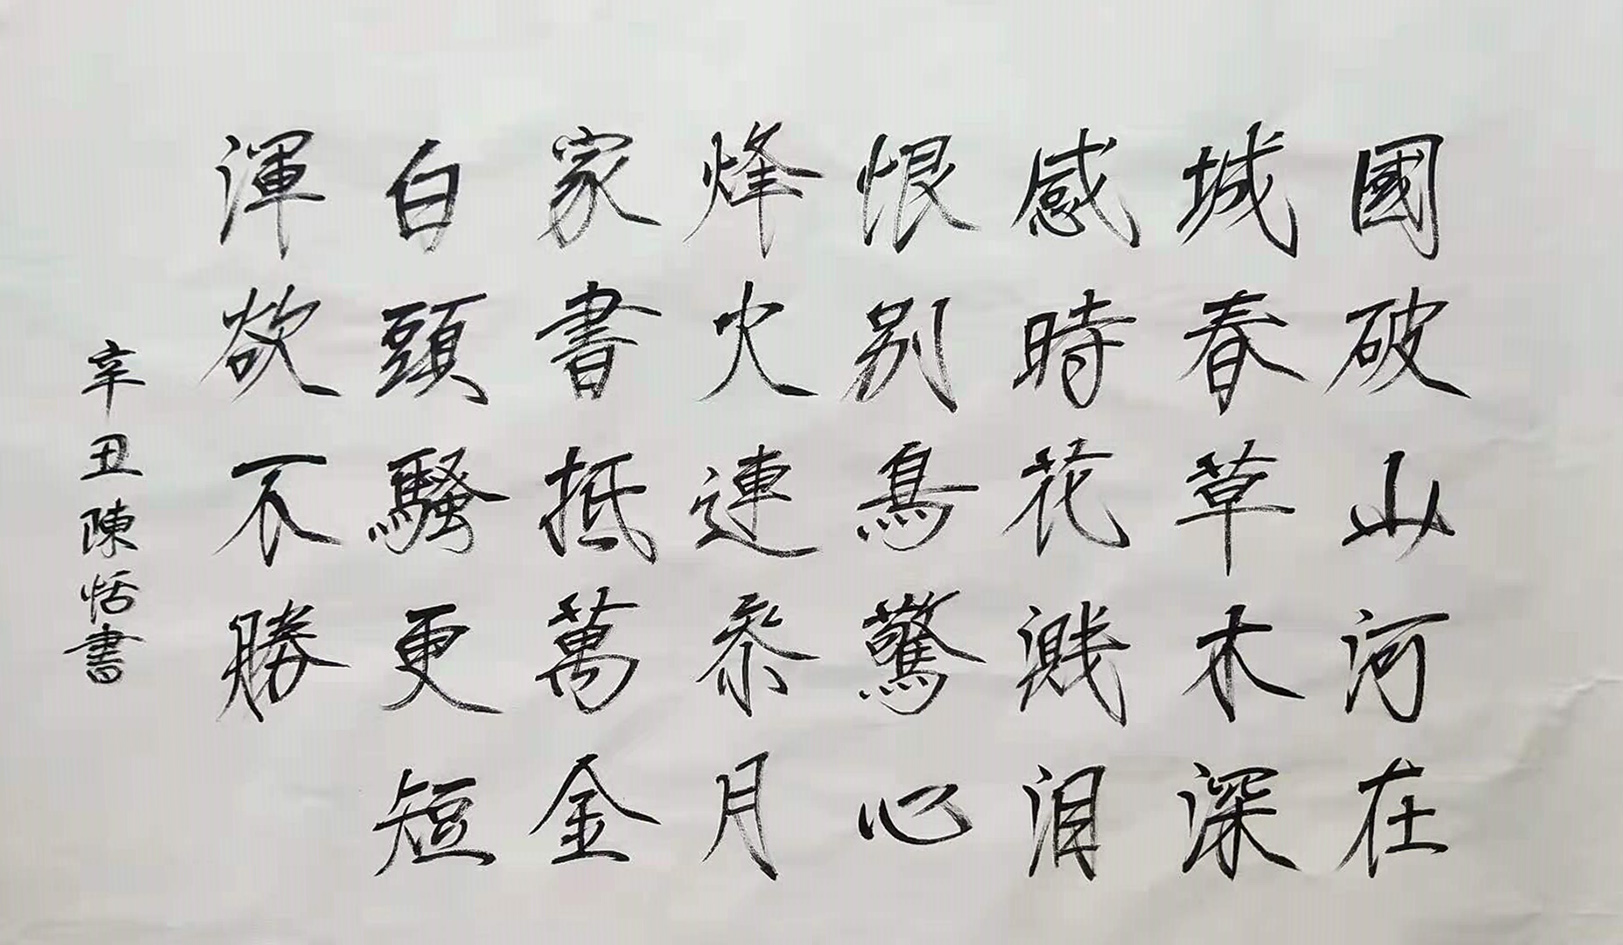 國破山河在
城春草木深
感時花濺泪
恨别鳥驚心
烽火連叅月
家書抵萬金
白頭騷更短
渾欲不勝
辛丑陳恬書